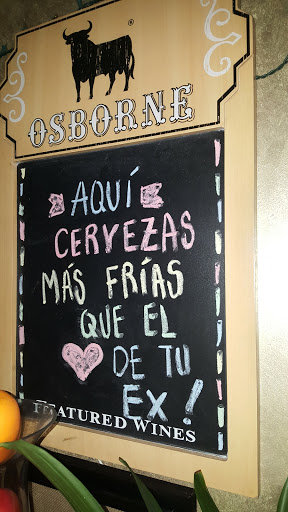 OSBORNE
®
AQUÍ
CERVEZAS
MÁS FRÍAS
QUE EL
DE TU
EX!
FEATURED WINES